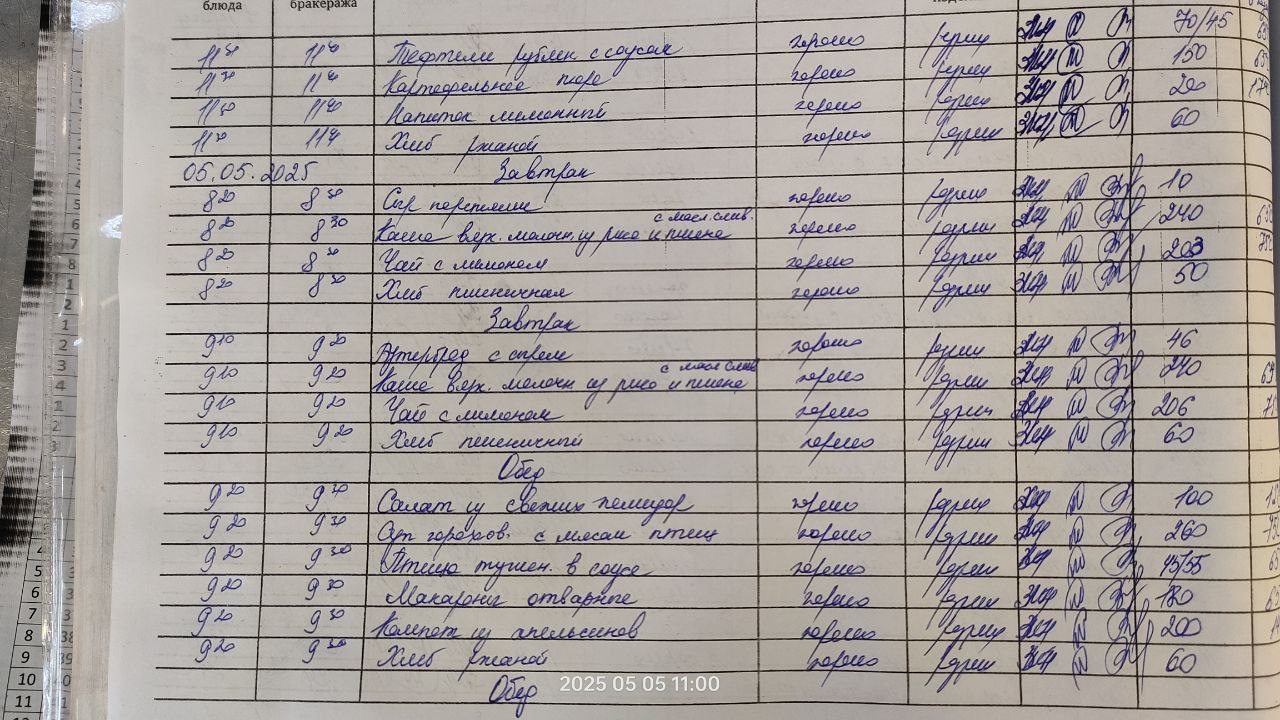 блюда бракеража
11 30 11 40 Тефтели рублен. с соусом хорошо 70/45
11 30 11 40 Картофельное пюре хорошо 150
11 30 11 40 Напиток лимонный хорошо 200
11 30 11 40 Хлеб ржаной хорошо 60
05.05.2025 Завтрак
8 20 8 30 Сыр порциями хорошо 10
с масл. слив.
8 20 8 30 Каша вяз. молочн. из риса и пшена хорошо 240
8 20 8 30 Чай с лимоном хорошо 203
8 20 8 30 Хлеб пшеничная хорошо 50
Завтрак
9 10 9 20 Бутерброд с сыром хорошо 46
с масл слив
9 10 9 20 Каша вяз. молочн из риса и пшена хорошо 240
9 10 9 20 Чай с лимоном хорошо 206
9 10 9 20 Хлеб пшеничный хорошо 60
Обед
9 20 9 30 Салат из свежих помидор хорошо 100
9 20 9 30 Суп горохов. с мясом птиц хорошо 260
9 20 9 30 Птица тушен. в соусе хорошо 45/55
9 20 9 30 Макароны отварные хорошо 180
9 20 9 30 Компот из апельсинов хорошо 200
9 20 9 30 Хлеб ржаной хорошо 60
Обед
2025 05 05 11:00